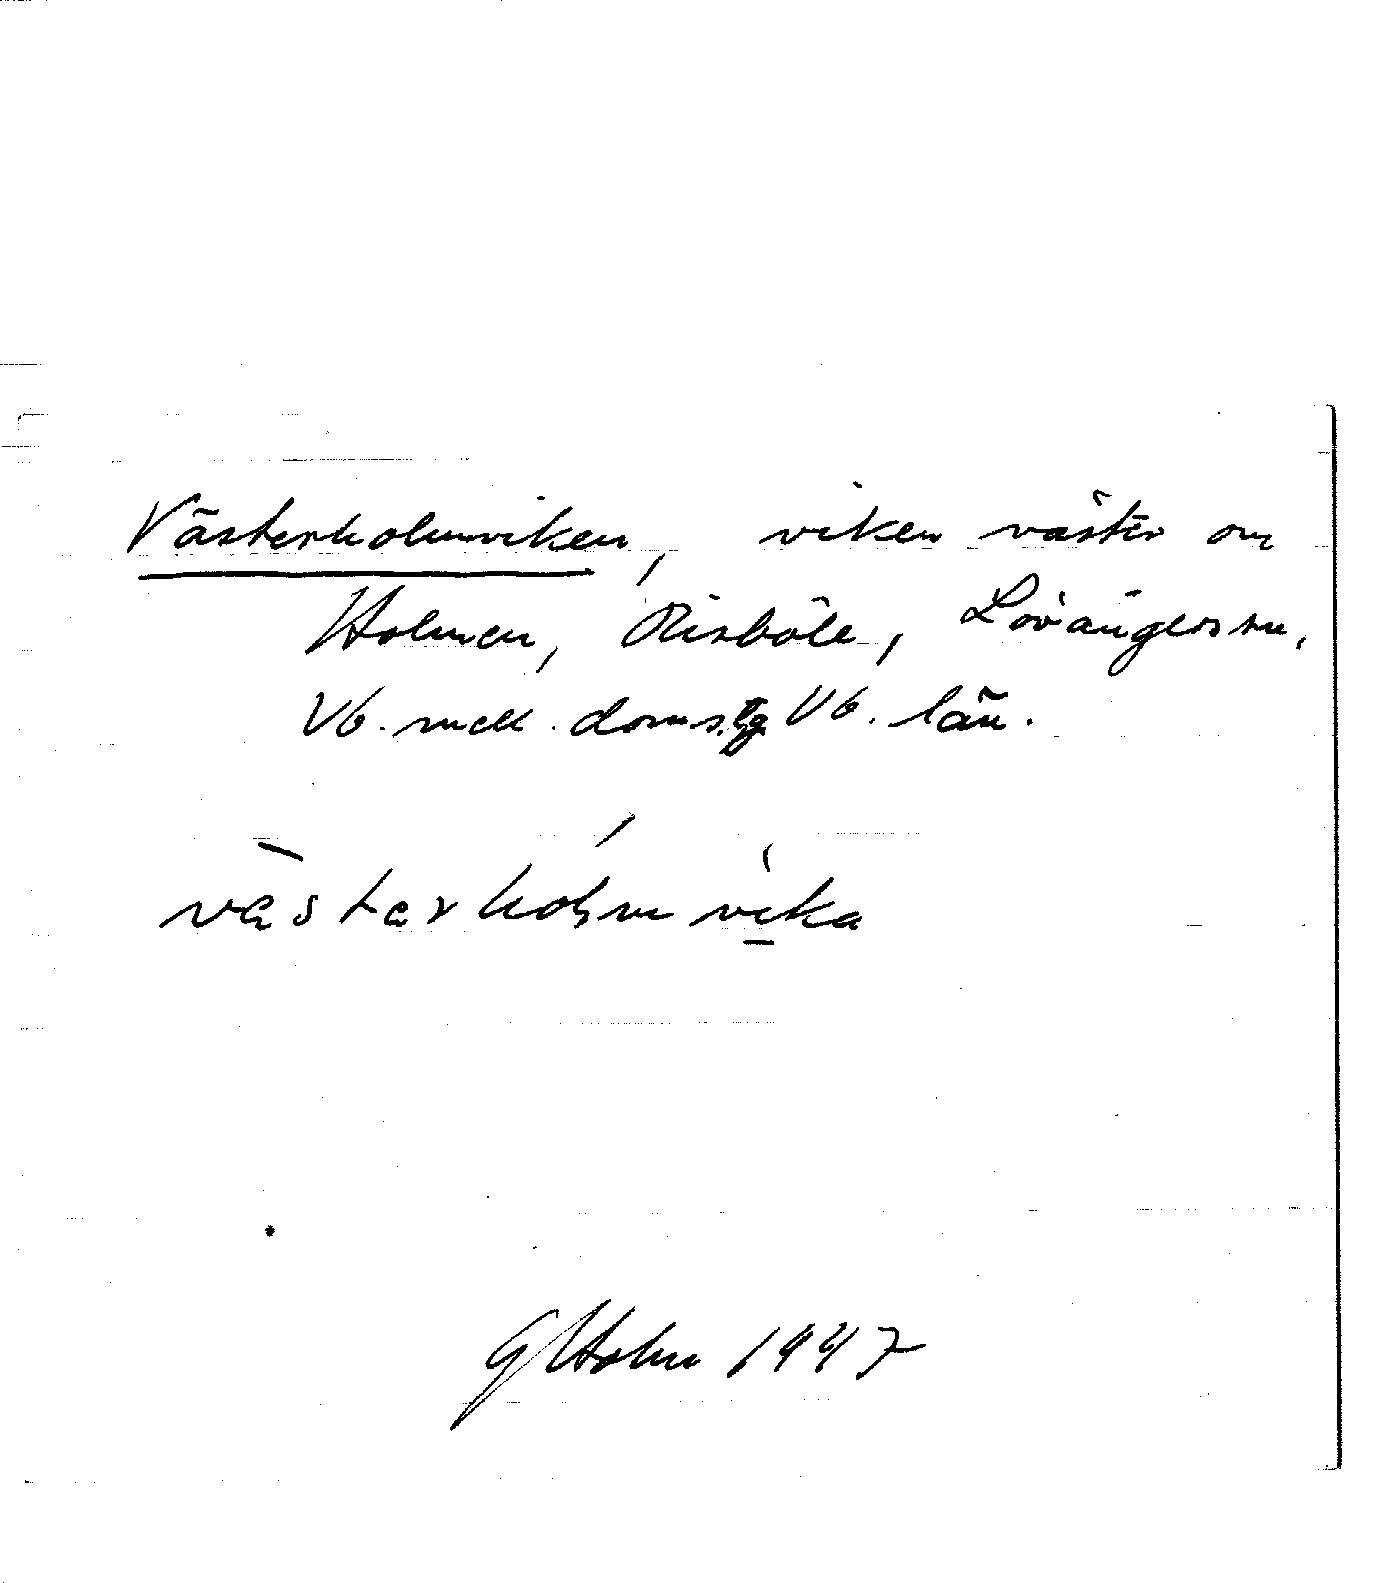 Västerholmviken, viken väster om
Holmen, Risböle, Lövångers sn,
Vb. mell. doms.tg Vb. län.
västerholmvika
G Holm 1947